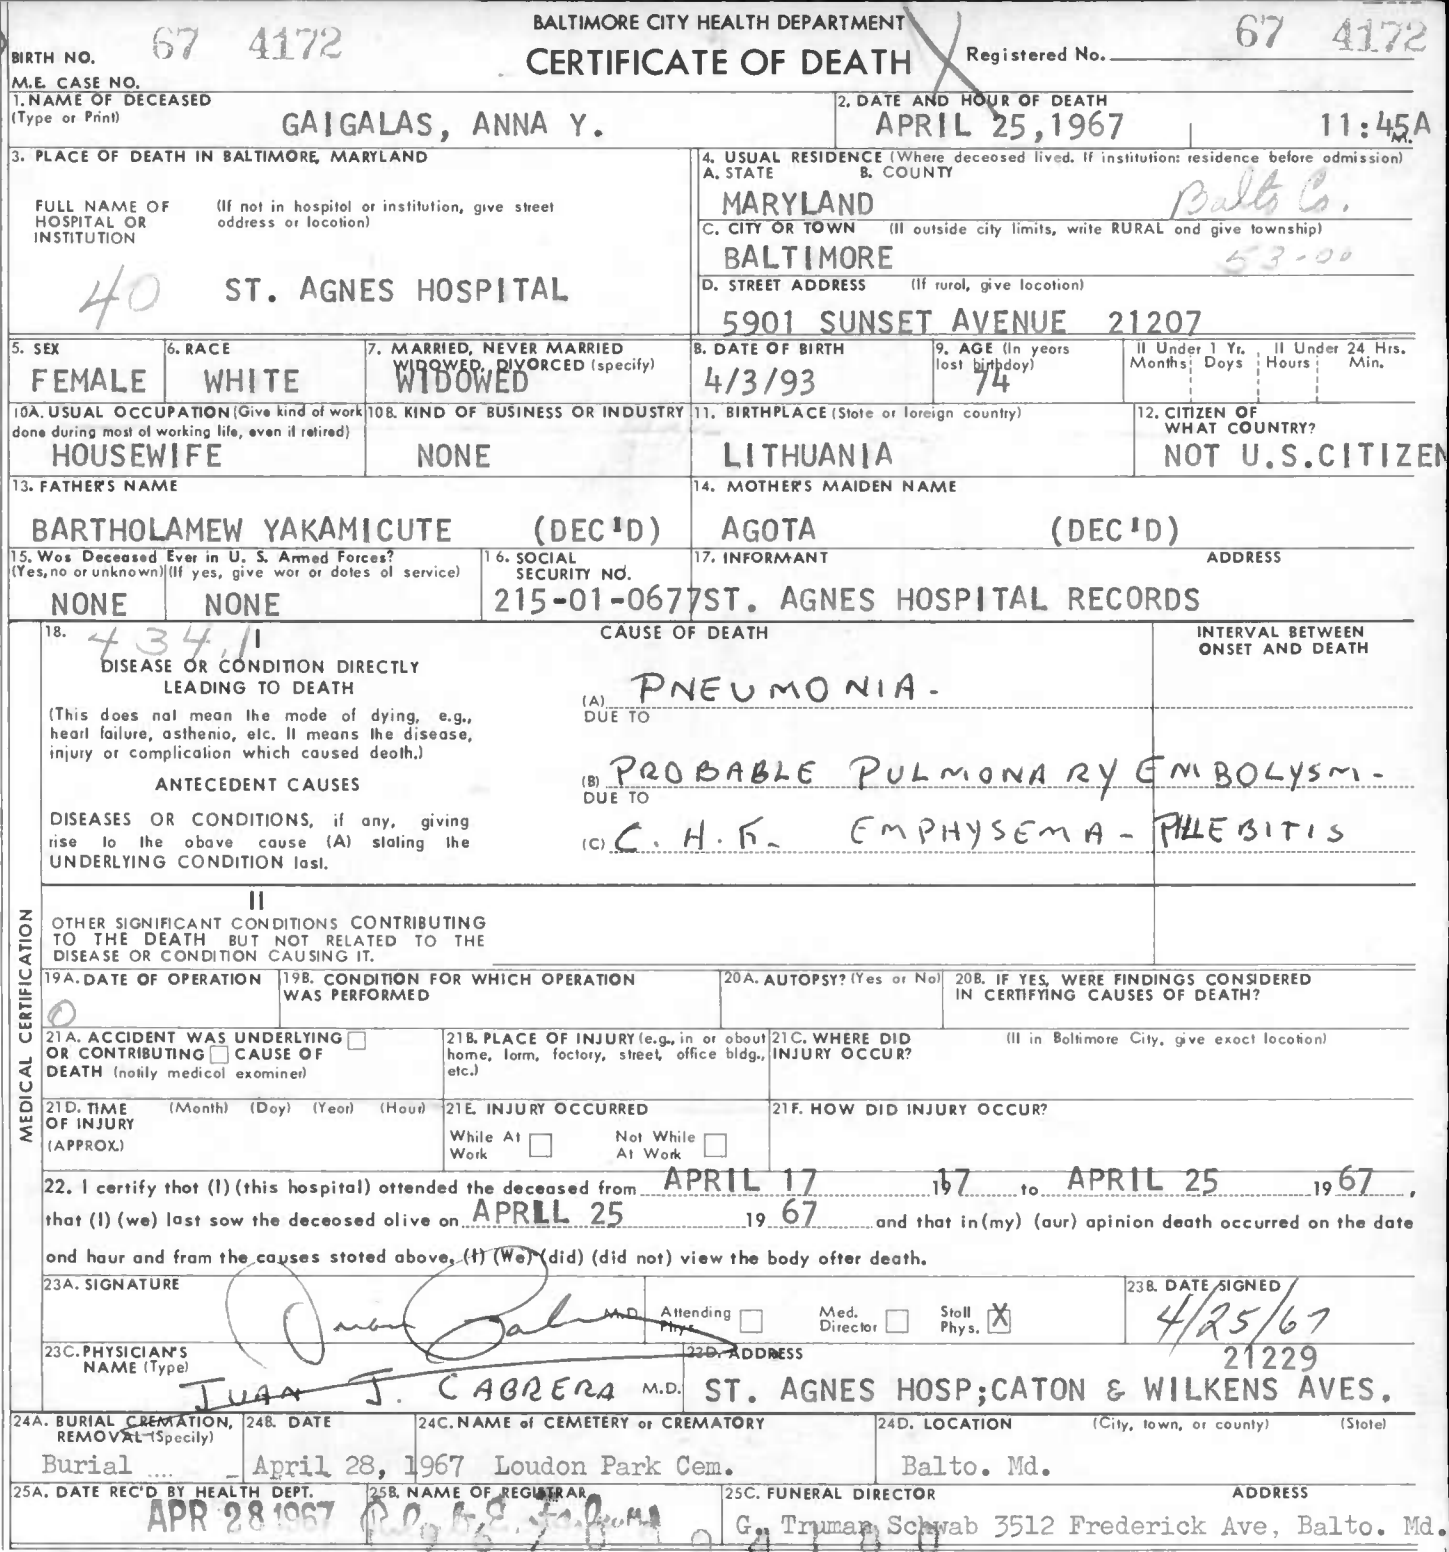 BALTIMORE CITY HEALTH DEPARTMENT
CERTIFICATE OF DEATH
BIRTH NO. 67 4172
Registered No. 67 4172
M.E. CASE NO.
1. NAME OF DECEASED
(Type or Print)
GAIGALAS, ANNA Y.
2. DATE AND HOUR OF DEATH
APRIL 25,1967 11:45A M.
3. PLACE OF DEATH IN BALTIMORE, MARYLAND
FULL NAME OF HOSPITAL OR INSTITUTION
(If not in hospital or institution, give street address or location)
40 ST. AGNES HOSPITAL
4. USUAL RESIDENCE (Where deceased lived. If institution: residence before admission)
A. STATE B. COUNTY
MARYLAND Balto Co.
C. CITY OR TOWN (If outside city limits, write RURAL and give township)
BALTIMORE 53-00
D. STREET ADDRESS (If rural, give location)
5901 SUNSET AVENUE 21207
5. SEX
FEMALE
6. RACE
WHITE
7. MARRIED, NEVER MARRIED
WIDOWED, DIVORCED (specify)
WIDOWED
8. DATE OF BIRTH
4/3/93
9. AGE (In years last birthday)
74
If Under 1 Yr. If Under 24 Hrs.
Months Days Hours Min.
10A. USUAL OCCUPATION (Give kind of work done during most of working life, even if retired)
HOUSEWIFE
10B. KIND OF BUSINESS OR INDUSTRY
NONE
11. BIRTHPLACE (State or foreign country)
LITHUANIA
12. CITIZEN OF WHAT COUNTRY?
NOT U.S.CITIZEN
13. FATHER'S NAME
BARTHOLAMEW YAKAMICUTE (DEC'D)
14. MOTHER'S MAIDEN NAME
AGOTA (DEC'D)
15. Was Deceased Ever in U. S. Armed Forces?
(Yes, no or unknown) (If yes, give war or dates of service)
NONE NONE
16. SOCIAL SECURITY NO.
215-01-0677
17. INFORMANT ADDRESS
ST. AGNES HOSPITAL RECORDS
MEDICAL CERTIFICATION
18. 434.1
CAUSE OF DEATH
INTERVAL BETWEEN ONSET AND DEATH
I
DISEASE OR CONDITION DIRECTLY LEADING TO DEATH
(This does not mean the mode of dying, e.g., heart failure, asthenia, etc. It means the disease, injury or complication which caused death.)
(A) PNEUMONIA.
DUE TO
ANTECEDENT CAUSES
(B) PROBABLE PULMONARY EMBOLYSM.
DUE TO
DISEASES OR CONDITIONS, if any, giving rise to the above cause (A) stating the UNDERLYING CONDITION last.
(C) C. H. F. EMPHYSEMA - PHLEBITIS
II
OTHER SIGNIFICANT CONDITIONS CONTRIBUTING TO THE DEATH BUT NOT RELATED TO THE DISEASE OR CONDITION CAUSING IT.
19A. DATE OF OPERATION
0
19B. CONDITION FOR WHICH OPERATION WAS PERFORMED
20A. AUTOPSY? (Yes or No)
20B. IF YES, WERE FINDINGS CONSIDERED IN CERTIFYING CAUSES OF DEATH?
21A. ACCIDENT WAS UNDERLYING OR CONTRIBUTING CAUSE OF DEATH (notify medical examiner)
21B. PLACE OF INJURY (e.g., in or about home, farm, factory, street, office bldg., etc.)
21C. WHERE DID INJURY OCCUR?
(If in Baltimore City, give exact location)
21D. TIME OF INJURY (APPROX.)
(Month) (Day) (Year) (Hour)
21E. INJURY OCCURRED
While At Work Not While At Work
21F. HOW DID INJURY OCCUR?
22. I certify that (I) (this hospital) attended the deceased from APRIL 17 1967 to APRIL 25 1967,
that (I) (we) last saw the deceased alive on APRIL 25 1967 and that in (my) (our) opinion death occurred on the date
and hour and from the causes stated above, (I) (We) (did) (did not) view the body after death.
23A. SIGNATURE
M.D.
Attending Phys. Med. Director Staff Phys. X
23B. DATE SIGNED
4/25/67
23C. PHYSICIAN'S NAME (Type)
JUAN J. CABRERA M.D.
23D. ADDRESS 21229
ST. AGNES HOSP;CATON & WILKENS AVES.
24A. BURIAL, CREMATION, REMOVAL (Specify)
Burial
24B. DATE
April 28, 1967
24C. NAME of CEMETERY or CREMATORY
Loudon Park Cem.
24D. LOCATION (City, town, or county) (State)
Balto. Md.
25A. DATE REC'D BY HEALTH DEPT.
APR 28 1967
25B. NAME OF REGISTRAR
25C. FUNERAL DIRECTOR ADDRESS
G. Truman Schwab 3512 Frederick Ave, Balto. Md.